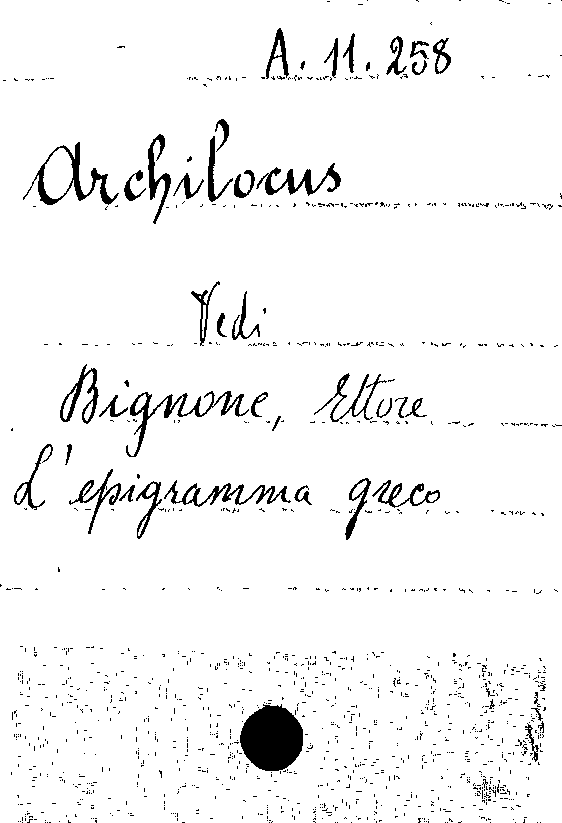 A. 11. 258
Archilocus
Vedi
Bignone, Ettore
L'epigramma greco